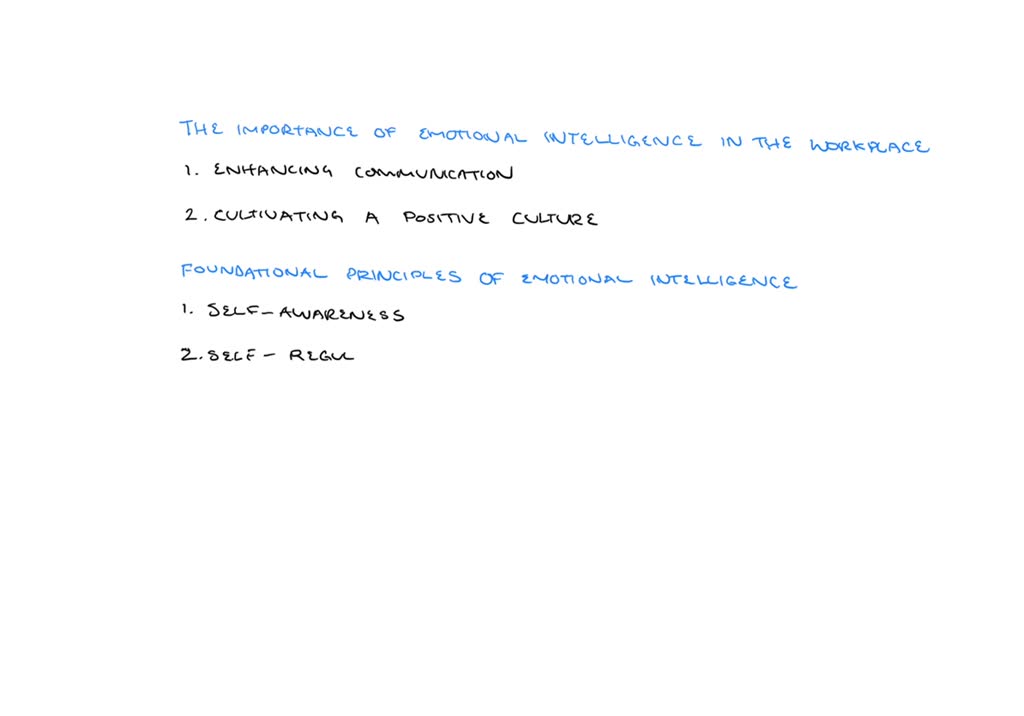 THE IMPORTANCE OF EMOTIONAL INTELLIGENCE IN THE WORKPLACE
1. ENHANCING COMMUNICATION
2. CULTIVATING A POSITIVE CULTURE
FOUNDATIONAL PRINCIPLES OF EMOTIONAL INTELLIGENCE
1. SELF-AWARENESS
2. SELF- REGUL